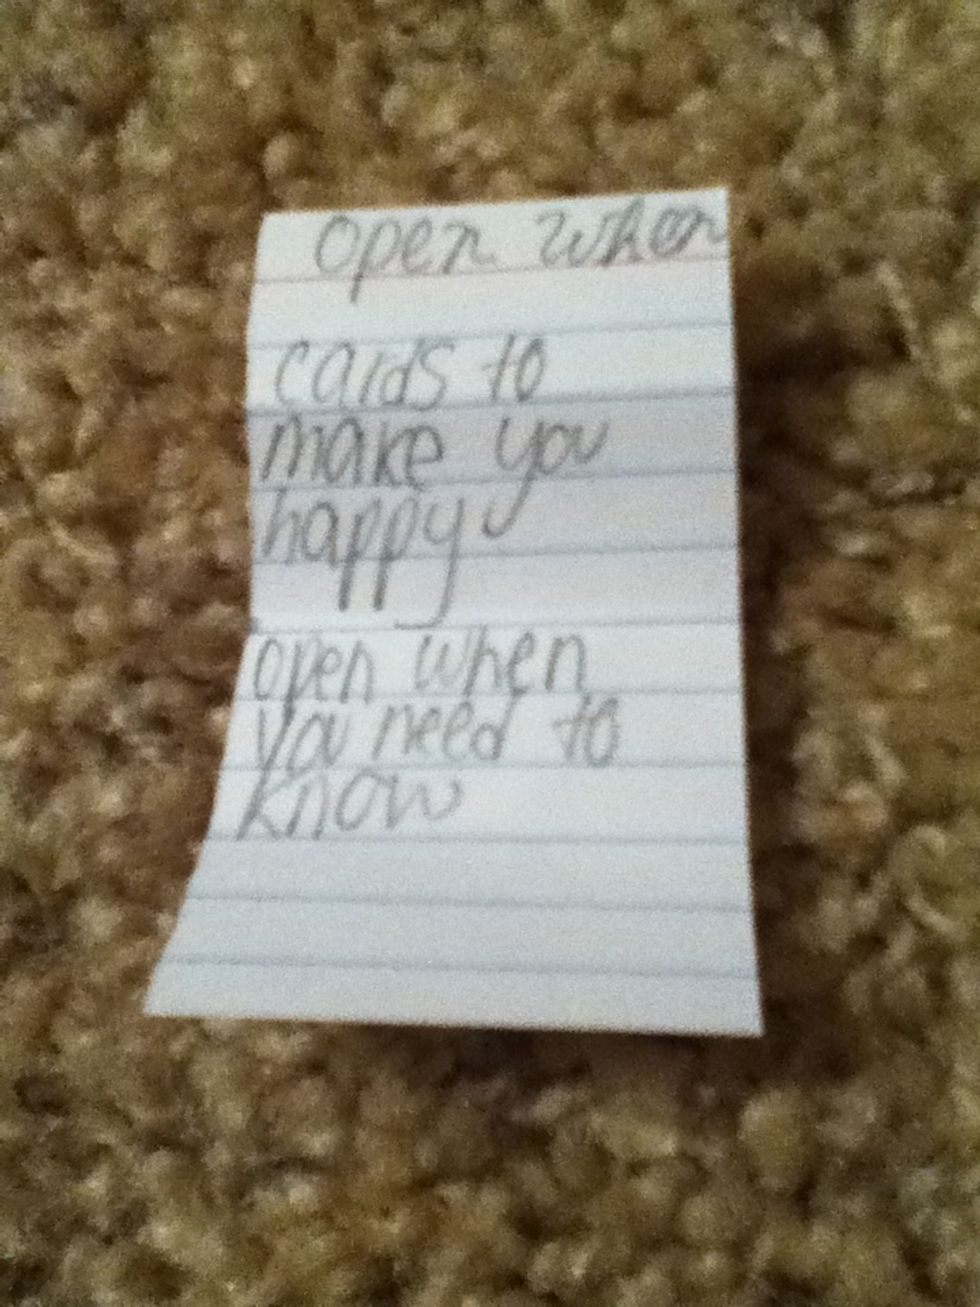 open when
cards to
make you
happy
open when
you need to
know